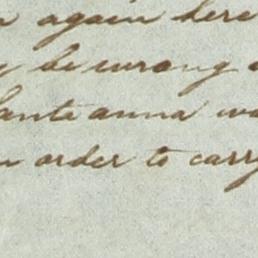 again here
be wrong
Santa anna
order to carry